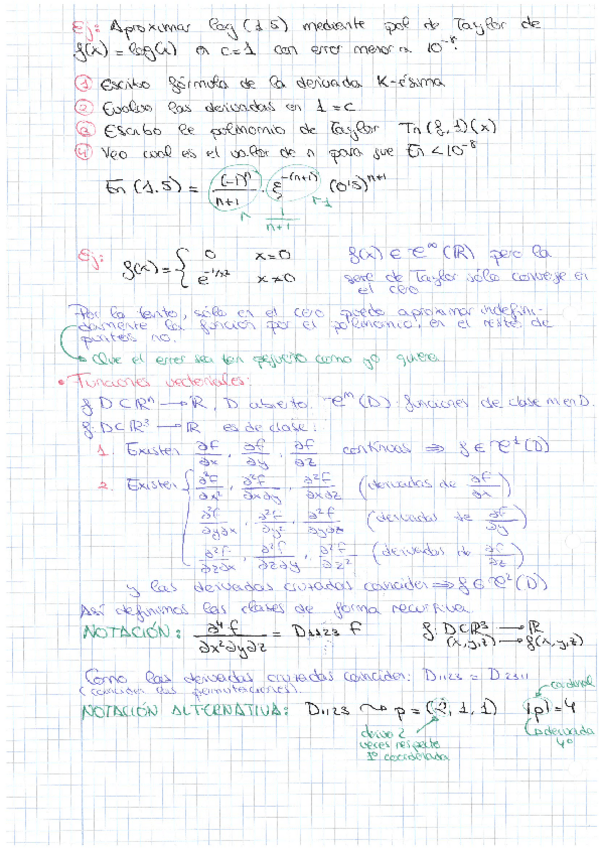 Ej: Aproximar log(1'5) mediante pol de Taylor de
f(x) = log(x) en c=1 con error menor a 10^-8.
① Escribo fórmula de la derivada K-ésima
② Evalúo las derivadas en 1=c
③ Escribo el polinomio de Taylor Tn(f,1)(x)
④ Veo cual es el valor de n para que En < 10^-8
En(1.5) = (-1)^n/n+1 · ξ^-(n+1) (0'5)^n+1
1/n+1
Ej: f(x) = { 0 x=0
e^-1/x² x≠0
f(x) ∈ C^∞(ℝ) pero la
serie de Taylor sólo converge en
el cero
Por lo tanto, sólo en el cero puedo aproximar indefini-
damente la función por el polinomio, en el resto de
puntos no.
Que el error sea tan pequeño como yo quiera
• Funciones vectoriales:
f: D⊂ℝ^n → ℝ, D abierto. C^m(D): funciones de clase m en D.
f: D⊂ℝ³ → ℝ es de clase:
1. Existen ∂f/∂x, ∂f/∂y, ∂f/∂z continuas ⇒ f ∈ C^1(D)
2. Existen { ∂²f/∂x², ∂²f/∂x∂y, ∂²f/∂x∂z (derivadas de ∂f/∂x)
∂²f/∂y∂x, ∂²f/∂y², ∂²f/∂y∂z (derivadas de ∂f/∂y)
∂²f/∂z∂x, ∂²f/∂z∂y, ∂²f/∂z² (derivadas de ∂f/∂z)
y las derivadas cruzadas coinciden ⇒ f ∈ C²(D)
Así definimos las clases de forma recursiva.
NOTACIÓN: ∂⁴f/∂x²∂y∂z = D1123 f f: D⊂ℝ³ → ℝ
(x,y,z) → f(x,y,z)
Como las derivadas cruzadas coinciden: D1123 = D2311
(coinciden las permutaciones).
cardinal
NOTACIÓN ALTERNATIVA: D1123 ⤳ p = (2, 1, 1) |p| = 4
derivo 2
veces respecto
1º coordenada
derivada
4º